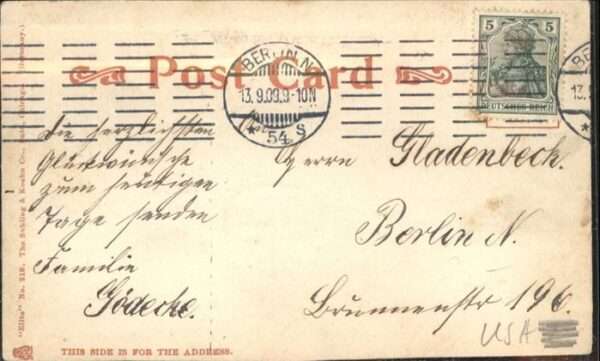 Post Card
5
DEUTSCHES REICH
BERLIN N.
13.9.09.9-10N
* 54 S
BE
13.
Die herzlichsten
Glückwünsche
zum heutigen
Tage senden
Familie
Gödecke.
Herrn Gladenbeck.
Berlin N.
Brunnenstr 196.
USA
THIS SIDE IS FOR THE ADDRESS.
"Elite" No. 218. The Suhling & Koehn Co., Chicago. Germany.)